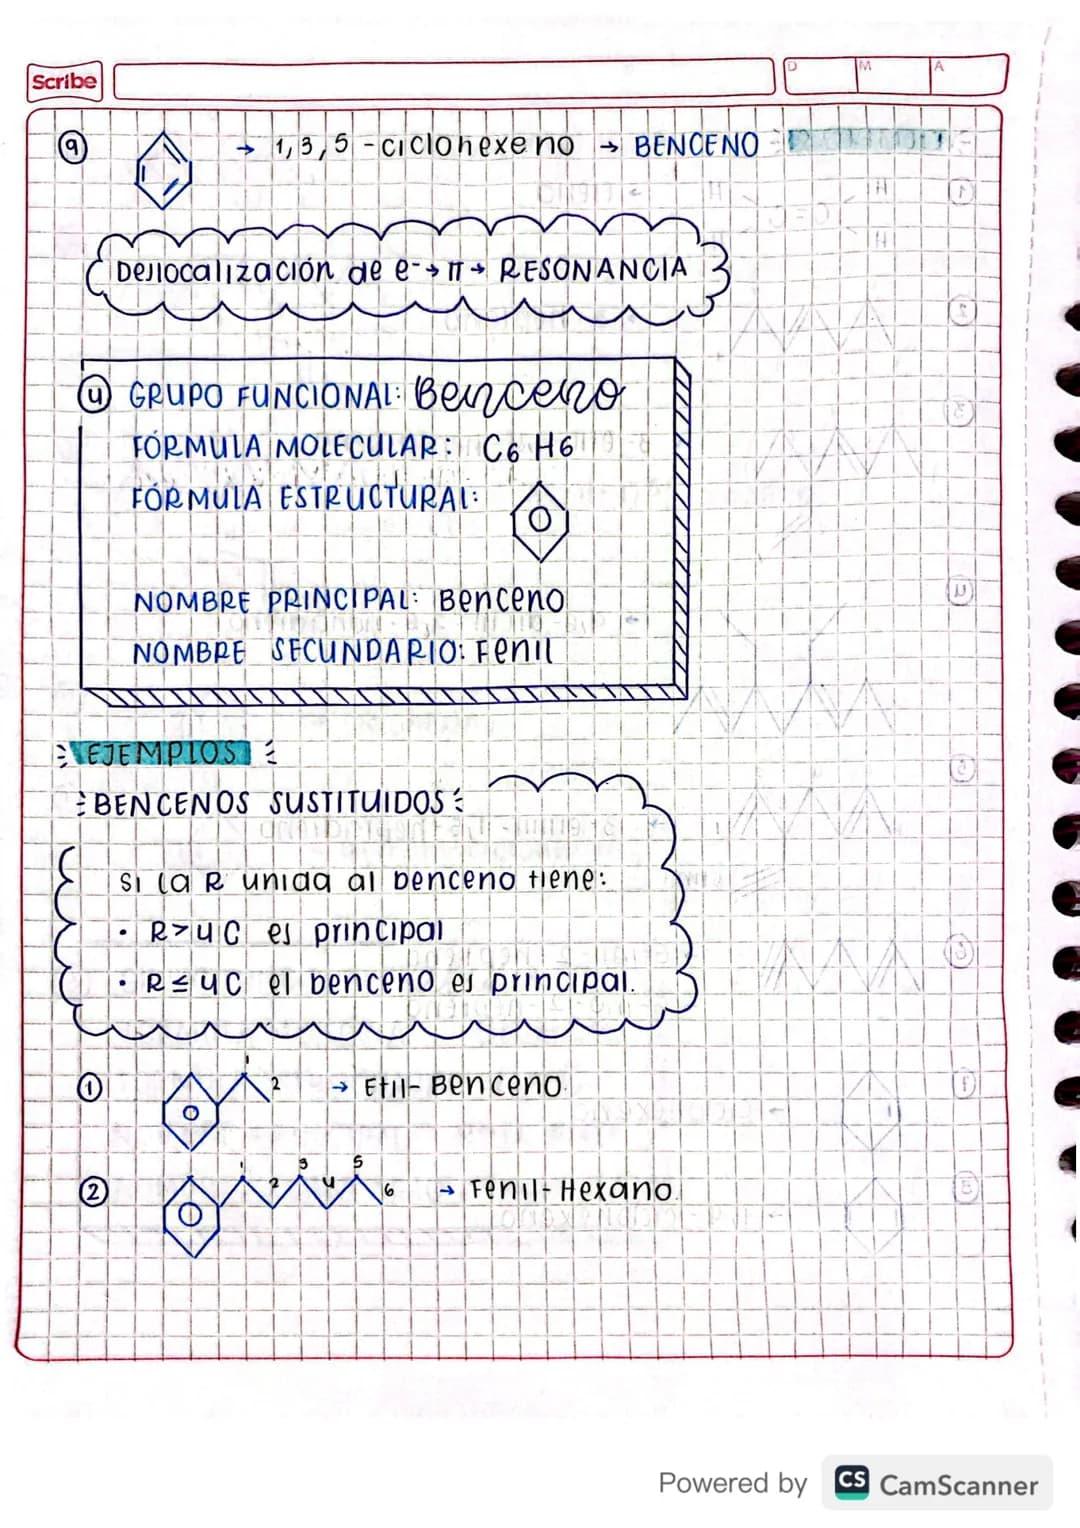 Scribe
D M A
9 → 1,3,5-ciclohexeno → BENCENO
Deslocalización de e⁻→ π → RESONANCIA
4 GRUPO FUNCIONAL: Benceno
FÓRMULA MOLECULAR: C6 H6
FÓRMULA ESTRUCTURAL:
NOMBRE PRINCIPAL: Benceno
NOMBRE SECUNDARIO: Fenil
EJEMPLOS
BENCENOS SUSTITUIDOS
Si la R unida al benceno tiene:
• R>4C es principal
• R≤4C el benceno es principal.
1 1 2 → Etil-Benceno.
2 1 2 3 4 5 6 → Fenil-Hexano.
Powered by CS CamScanner